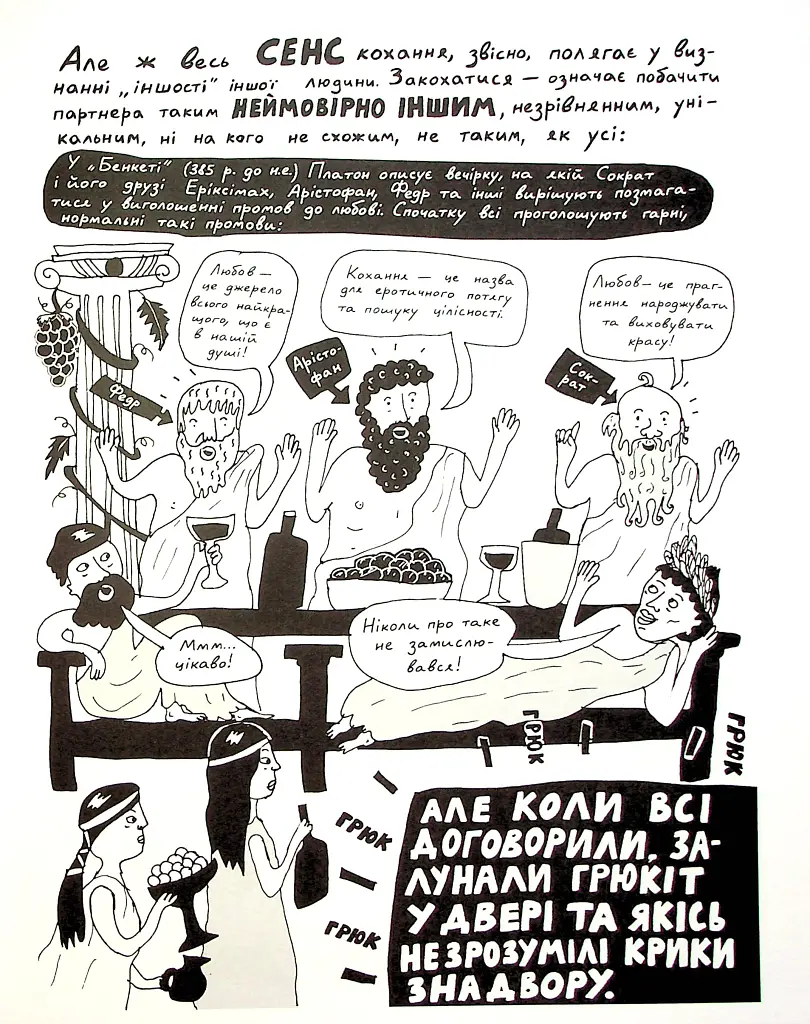 Але ж весь СЕНС кохання, звісно, полягає у виз-
нанні „іншості" іншої людини. Закохатися — означає побачити
партнера таким НЕЙМОВІРНО ІНШИМ, незрівнянним, уні-
кальним, ні на кого не схожим, не таким, як усі:
У „Бенкеті" (385 р. до н.е.) Платон описує вечірку, на якій Сократ
і його друзі Еріксімах, Арістофан, Федр та інші вирішують позмага-
тися у виголошенні промов до любові. Спочатку всі проголошують гарні,
нормальні такі промови:
Любов —
це джерело
всього найкра-
щого, що є
в нашій
душі!
Кохання — це назва
для еротичного потягу
та пошуку цілісності.
Любов — це праг-
нення народжувати
та виховувати
красу!
Федр
Арісто-
фан
Сок-
рат
Ммм...
цікаво!
Ніколи про таке
не замислю-
вався!
ГРЮК
ГРЮК
ГРЮК
ГРЮК
АЛЕ КОЛИ ВСІ
ДОГОВОРИЛИ, ЗА-
ЛУНАЛИ ГРЮКІТ
У ДВЕРІ ТА ЯКІСЬ
НЕЗРОЗУМІЛІ КРИКИ
ЗНАДВОРУ.